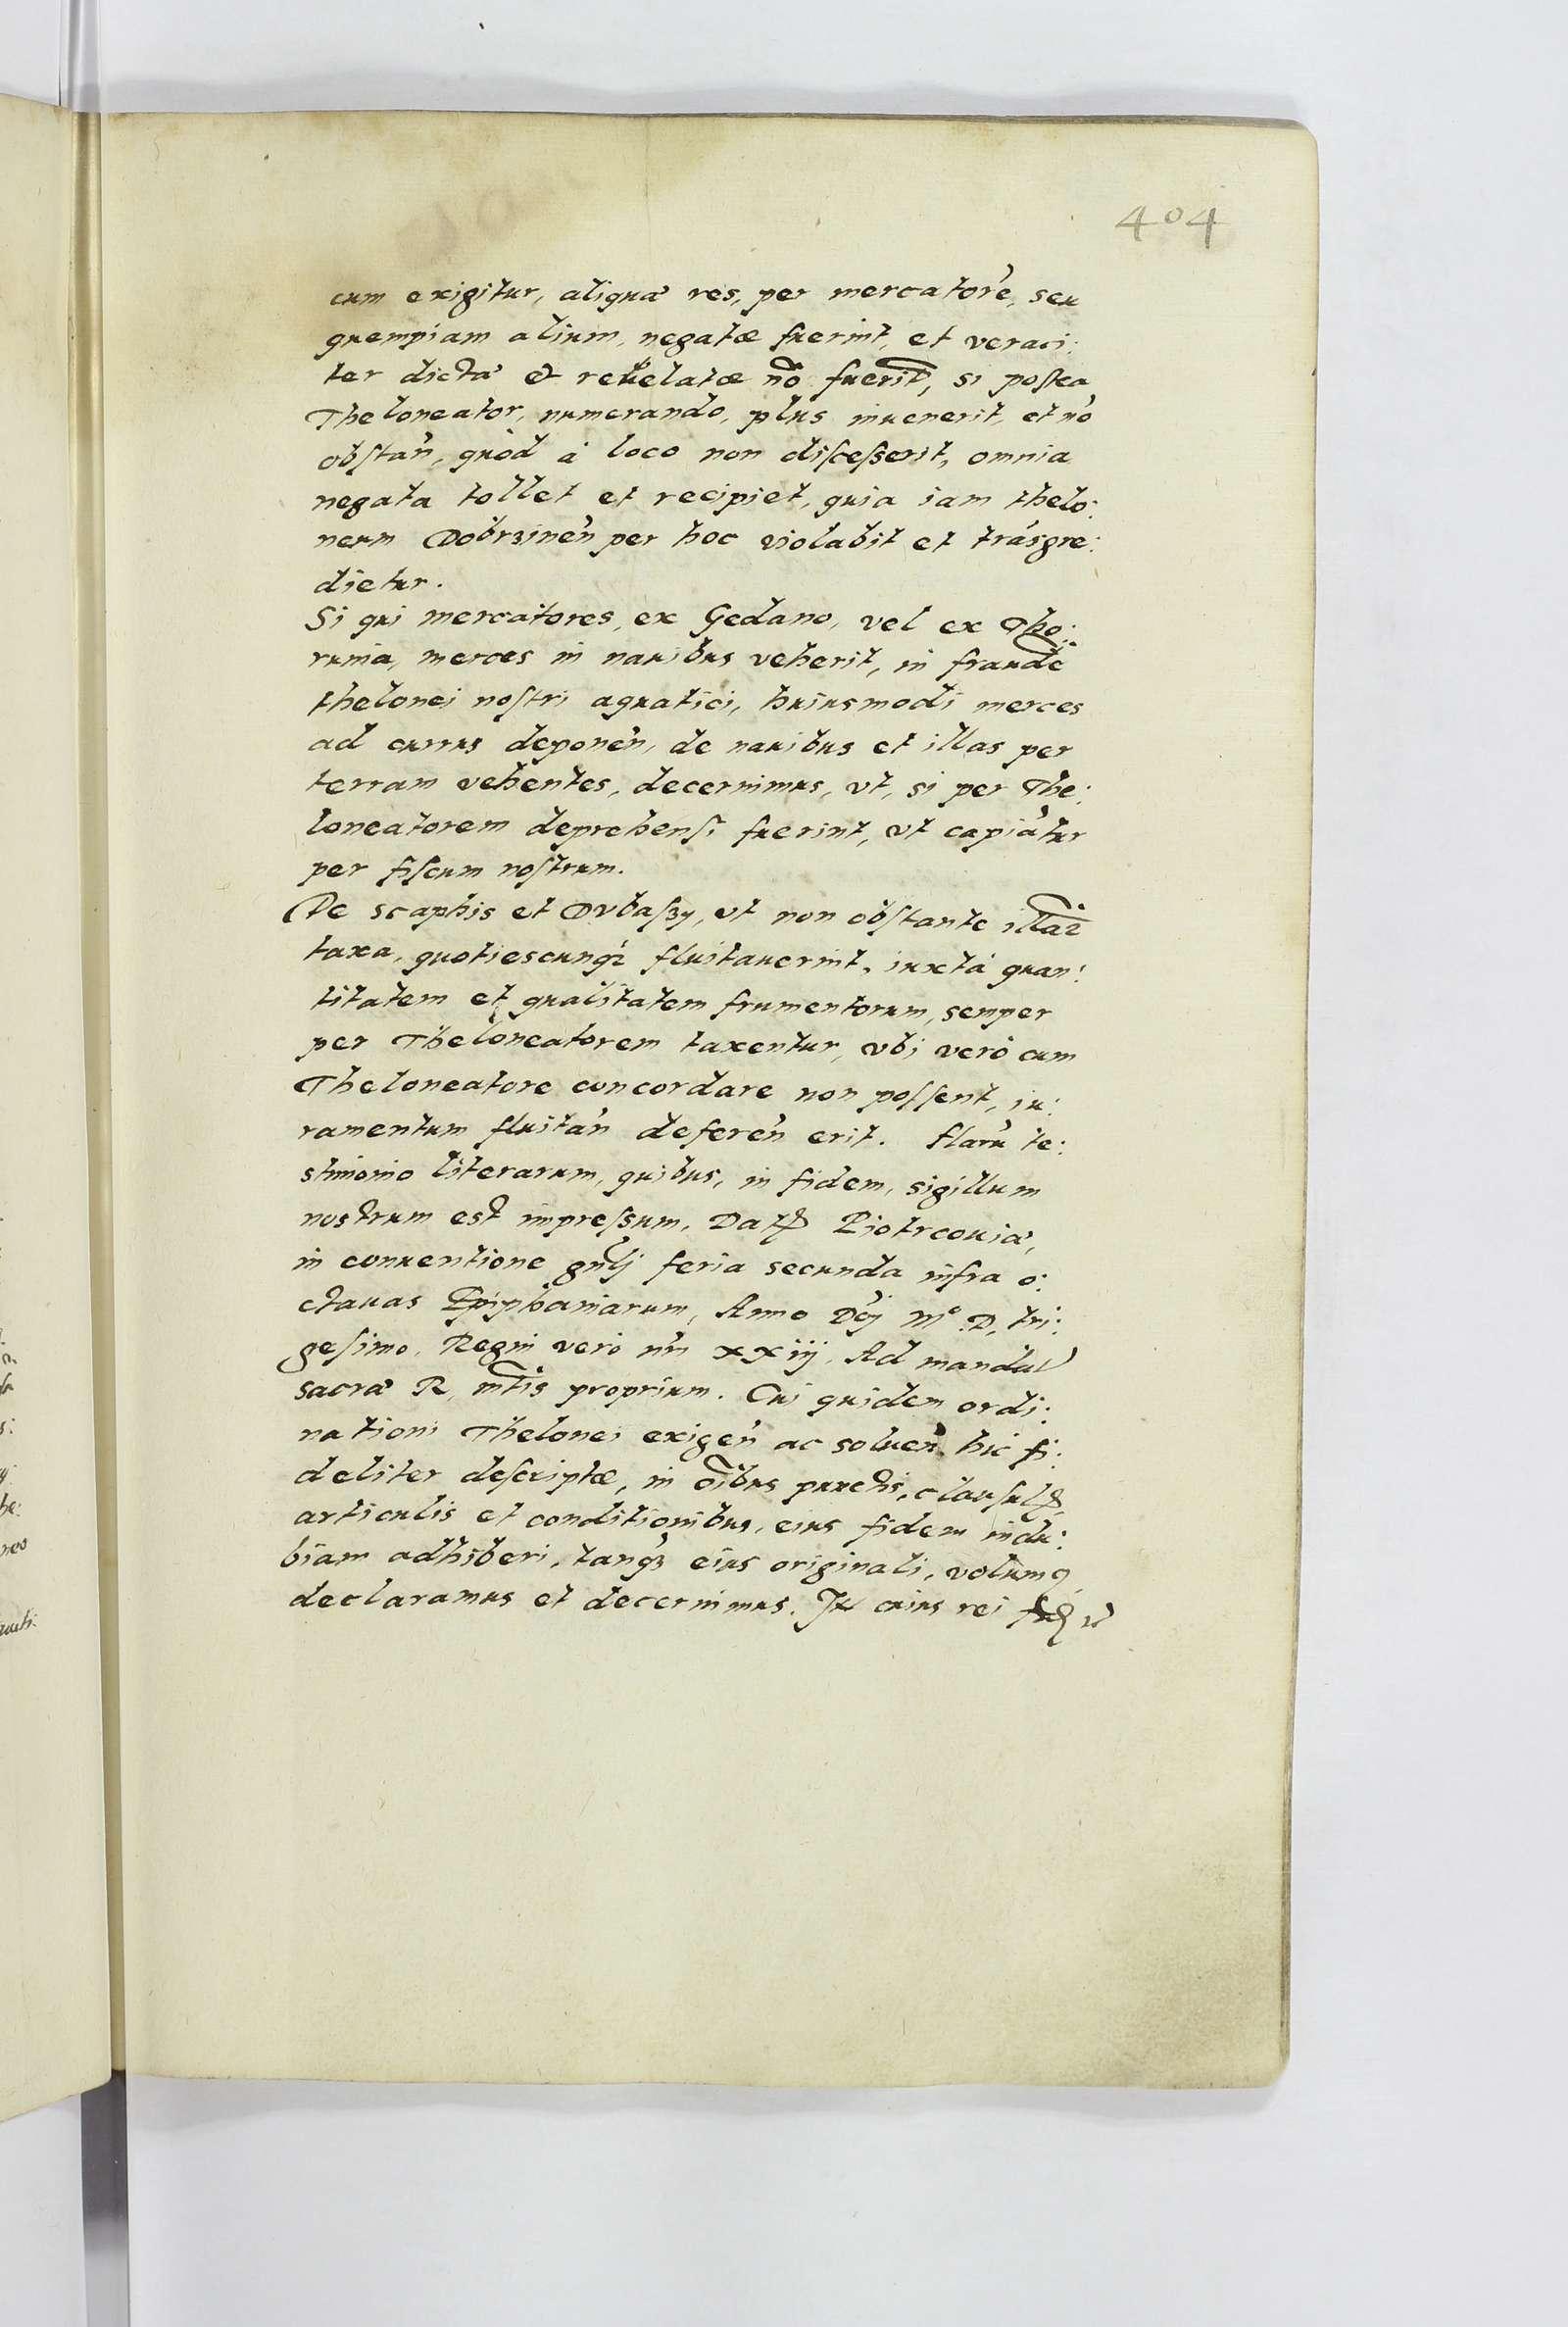 404
cum exigitur, aliquæ res, per mercatorē, seu
quempiam alium, negatæ fuerint, et veraci:
ter dictæ & reuelatæ nō fuerīt, si postea
Theloneator, numerando, plus inuenerit, et nō
obstan̄, quòd à loco non discesserit, omnia
negata tollet et recipiet, quia iam thelo:
neum Dobrzinen̄ per hoc violabit et trāsgre:
dietur.
Si qui mercatores, ex Gedano, vel ex Tho:
runia, merces in nauibus veherīt, in fraudē
thelonei nostri aquatici, huiusmodi merces
ad currus deponen̄, de nauibus et illas per
terram vehentes, decernimus, vt, si per The:
loneatorem deprehensi fuerint, vt capiātur
per fiscum nostrum.
De scaphis et Dvbaszy, vt non obstante illaꝝ
taxa, quotiescunqꝫ fluitauerint, iuxtà quan:
titatem et qualitatem frumentorum, semper
per Theloneatorem taxentur, vbi verò cum
Theloneatore concordare non possent, iu:
ramentum fluitan̄ deferen̄ erit. Harū te:
stimonio literarum, quibus, in fidem, sigillum
nostrum est impressum. Datꝭ Piotrcouiæ,
in conuentione gn̄lj feria secunda infra o:
ctauas Epiphaniarum, Anno Dn̄j Mo D. tri:
gesimo, Regni vero nr̄i xxiij. Ad mandat
sacræ R. mt̄is proprium. Cui quidem ordi:
nationi Thelonei exigen̄ ac soluen̄ hic fi:
deliter descriptæ, in oībus punctis, clausulꝭ
articulis et conditionibus, eius fidem indu:
biam adhiberi, tanqꝫ eius originali, volumꝰ
declaramus et decernimus. In cuius rei